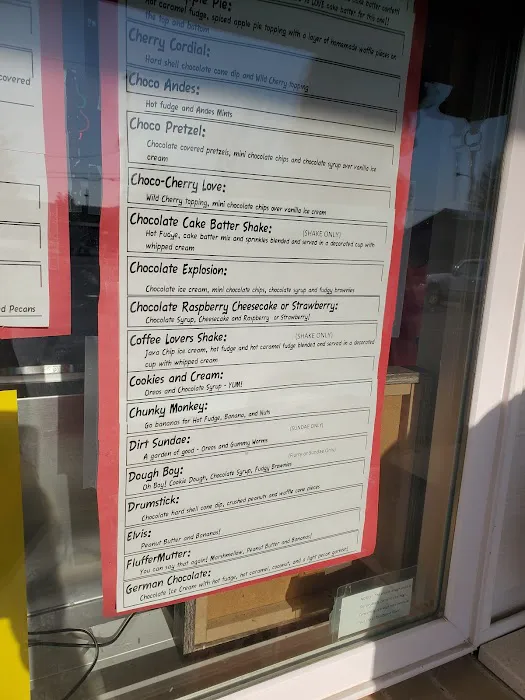 Pie:
cake batter for this one!!
Hot caramel fudge, spiced apple pie topping with a layer of homemade waffle pieces on
the top and bottom
Cherry Cordial:
Hard shell chocolate cone dip and Wild Cherry topping
Choco Andes:
Hot fudge and Andes Mints
Choco Pretzel:
Chocolate covered pretzels, mini chocolate chips and chocolate syrup over vanilla ice
cream
Choco-Cherry Love:
Wild Cherry topping, mini chocolate chips over vanilla ice cream
Chocolate Cake Batter Shake: (SHAKE ONLY)
Hot Fudge, cake batter mix and sprinkles blended and served in a decorated cup with
whipped cream
Chocolate Explosion:
Chocolate ice cream, mini chocolate chips, chocolate syrup and fudgy brownies
Chocolate Raspberry Cheesecake or Strawberry:
Chocolate Syrup, Cheesecake and Raspberry or Strawberry!
Coffee Lovers Shake: (SHAKE ONLY)
Java Chip ice cream, hot fudge and hot caramel fudge blended and served in a decorated
cup with whipped cream
Cookies and Cream:
Oreos and Chocolate Syrup - YUM!
Chunky Monkey:
Go bananas for Hot Fudge, Banana, and Nuts
Dirt Sundae: (SUNDAE ONLY)
A garden of good - Oreos and Gummy Worms
Dough Boy:
Oh Boy! Cookie Dough, Chocolate Syrup, Fudgy Brownies
Drumstick:
Chocolate hard shell cone dip, crushed peanuts and waffle cone pieces
Elvis:
Peanut Butter and Bananas!
FlufferMutter:
You can say that again! Marshmallow, Peanut Butter and Bananas!
German Chocolate:
Chocolate Ice Cream with hot fudge, hot caramel, coconut, and a light pecan garnish
covered
d Pecans